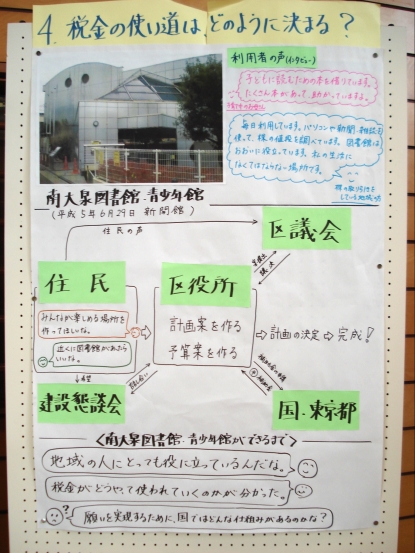 4 税金の使い道は、どのように決まる？
利用者の声(インタビュー)
子どもに読むための本を借りています。
たくさん本があって、助かっています。
毎日利用しています。パソコンや新聞、雑誌を
使って、株の値段を調べています。図書館は
おおいに役立っています。私の生活に
なくてはならない場所です。
南大泉図書館・青少年館
(平成5年6月29日 新開館)
住民の声
区議会
住民
区役所
みんなが楽しめる場所を
作ってほしいな。
近くに図書館があったら
いいな。
計画案を作る
予算案を作る
⇨計画の決定⇨完成!
希望
話し合い
建設懇談会
国・東京都
<南大泉図書館・青少年館ができるまで>
地域の人にとっても役に立っているんだな。
税金がどうやって使われていくのかが分かった。
?
願いを実現するために、国ではどんな仕組みがあるのかな?